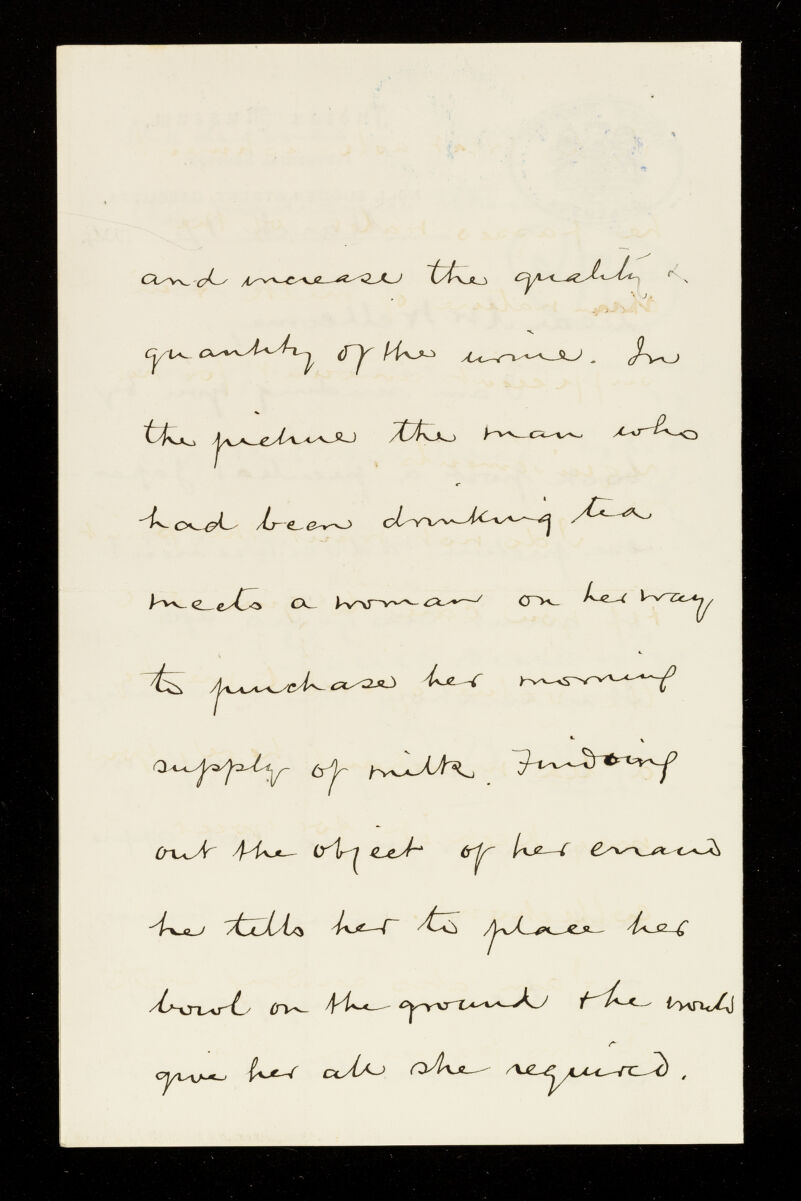 and increase the quality &
quantity of the urine. In
the picture the man who
had been drinking tea
meets a woman on her way
to purchase her morning
supply of milk. Finding
out the object of her errand
he tells her to place her
bowl on the ground & he would
give her all she required.